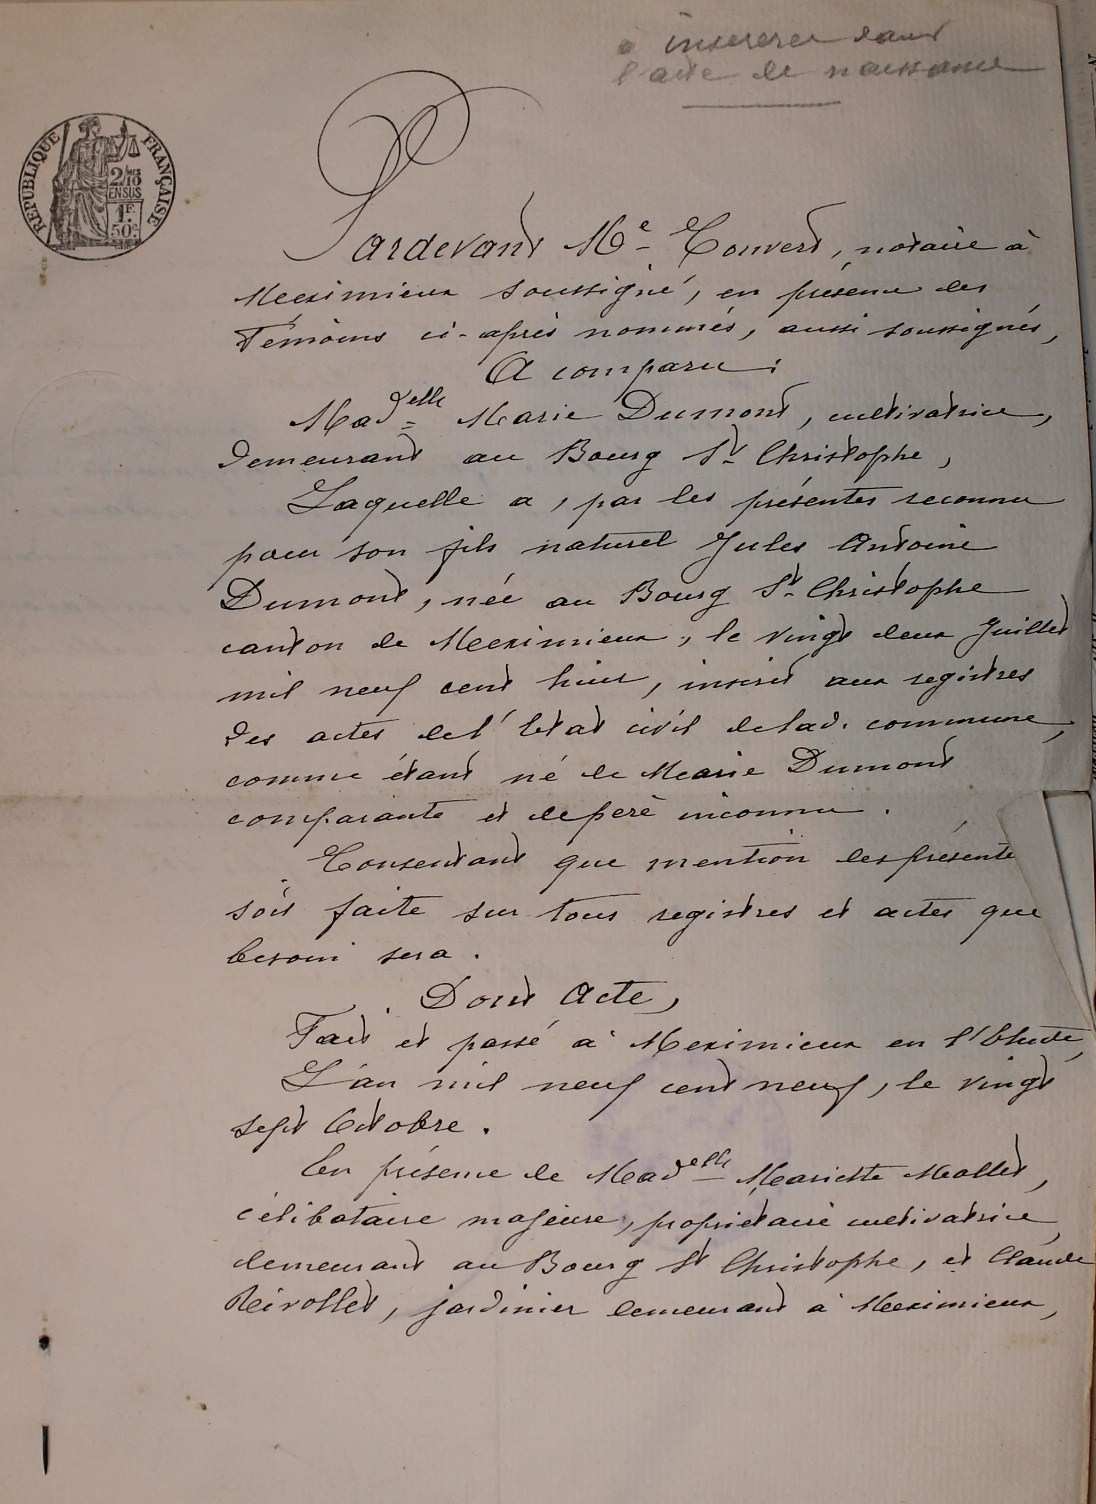 à insérer dans
l'acte de naissance
RÉPUBLIQUE FRANÇAISE
2/10
EN SUS
1F.
50c
Pardevant Me Convert, notaire à
Meximieux soussigné, en présence des
témoins ci-après nommés, aussi soussignés,
A comparu :
Madelle Marie Dumont, cultivatrice,
demeurant au Bourg St Christophe,
Laquelle a, par les présentes reconnu
pour son fils naturel Jules Antoine
Dumont, née au Bourg St Christophe
canton de Meximieux, le vingt deux Juillet
mil neuf cent huit, inscrit aux registres
des actes de l'Etat civil de lad. commune,
comme étant né de Marie Dumont
comparante et de père inconnu.
Consentant que mention des présentes
soit faite sur tous registres et actes que
besoin sera.
Dont Acte,
Fait et passé à Meximieux en l'Etude,
L'an mil neuf cent neuf, le vingt
sept Octobre.
En présence de Madelle Mariette Mollet,
célibataire majeure, propriétaire cultivatrice
demeurant au Bourg St Christophe, et Claude
Reivollet, jardinier demeurant à Meximieux,